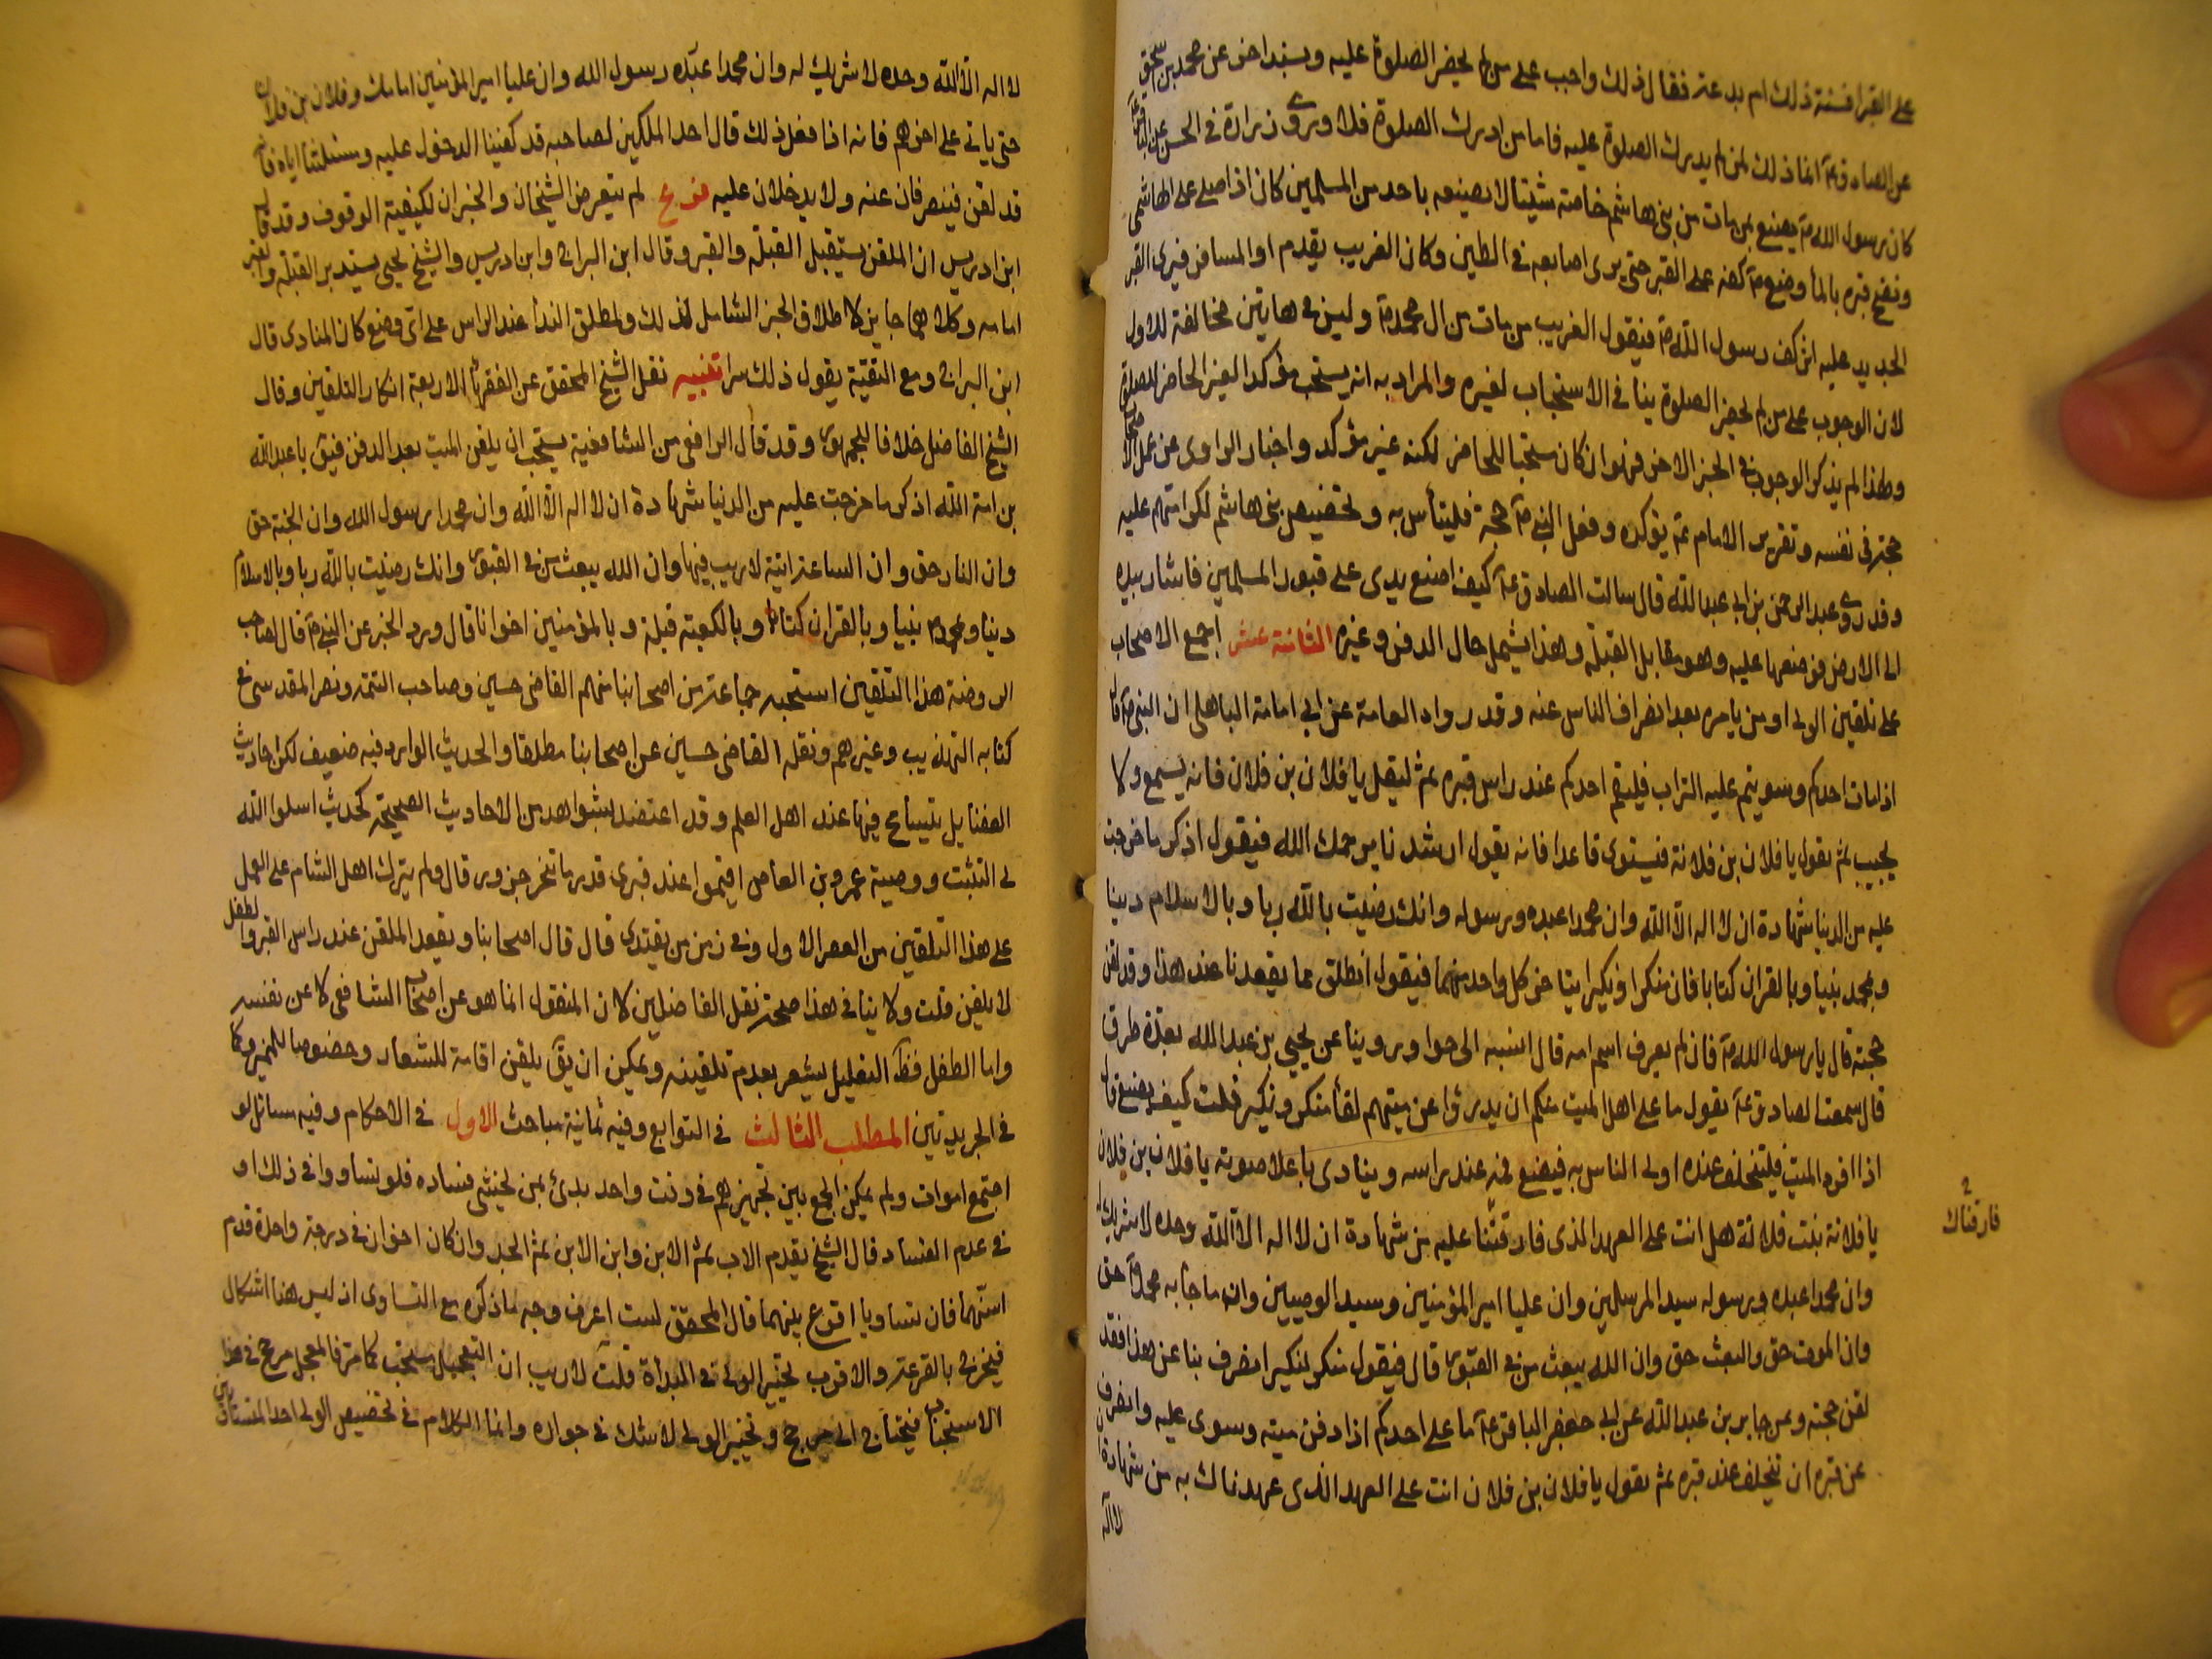 على القبر افسنة ذلك ام بدعة فقال ذلك واجب على من لم يحضر الصلوة عليه وبسند اخر عن محمد بن اسحق
عن الصادق ع انما ذلك لمن لم يدرك الصلوة عليه فاما من ادرك الصلوة فلا وروى زرارة في الحسن عن الباقر ع
كان رسول الله ص يصنع بمن مات من بني هاشم خاصة شيئا لا يصنعه باحد من المسلمين كان اذا صلى على الهاشمي
ونضح قبره بالماء وضع ص كفه على القبر حتى يرى اصابعه في الطين وكان الغريب يقدم او المسافر فيرى القبر
الجديد عليه اثر كف رسول الله ص فيقول الغريب من مات من ال محمد ص وليس في هاتين مخالفة للاول
لان الوجوب على من لم يحضر الصلوة ينافي الاستحباب لغيره والمراد به انه يستحب مؤكدا لغير الحاضر للصلوة
ولهذا لم يذكر الوجوب في الخبر الاخر فهو وان كان مستحبا للحاضر لكنه غير مؤكد واخبار الراوي عن عمل
حجة في نفسه وتقرير الامام ع يؤكده وفعل النبي ص حجة فليتأس به وتخصيص بني هاشم لكرامتهم عليه
وقد روى عبد الرحمن بن ابي عبد الله قال سالت الصادق ع كيف اضع يدي على قبور المسلمين فاشار بيده
الى الارض فوضعها عليه وهو مقابل القبلة وهذا يشمل حال الدفن وغيره الثانية عشر اجمع الاصحاب
على تلقين الولي او من يامره بعد انصراف الناس عنه وقد رواه العامة عن ابي امامة الباهلي ان النبي ص قال
اذا مات احدكم وسويتم عليه التراب فليقم احدكم عند راس قبره ثم ليقل يا فلان بن فلان فانه يسمع ولا
يجيب ثم يقول يا فلان بن فلانة فيستوي قاعدا فانه يقول ارشدنا يرحمك الله فيقول اذكر ما خرجت
عليه من الدنيا شهادة ان لا اله الا الله وان محمدا عبده ورسوله وانك رضيت بالله ربا وبالاسلام دينا
وبمحمد نبيا وبالقران كتابا فان منكرا ونكيرا يتاخر كل واحد منهما فيقول انطلق بما يقعدنا عند هذا وقد لقن
حجته قال يا رسول الله ص فان لم يعرف اسم امه قال انسبه الى حوا وروينا عن يحيى بن عبد الله بعدة طرق
قال سمعت الصادق ع يقول ما على اهل الميت منكم ان يدرؤا عن ميتهم لقاء منكر ونكير فقلت كيف يصنع قال
اذا افرد الميت فليتخلف عنده اولى الناس به فيضع فمه عند راسه وينادي باعلا صوته يا فلان بن فلان
يا فلانة بنت فلانة هل انت على العهد الذي فارقتنا عليه من شهادة ان لا اله الا الله وحده لا شريك له
فارقناك
وان محمدا عبده ورسوله سيد المرسلين وان عليا امير المؤمنين وسيد الوصيين وان ما جاء به محمد ص حق
وان الموت حق والبعث حق وان الله يبعث من في القبور قال فيقول منكر لنكير انصرف بنا عن هذا فقد
لقن حجته وعن جابر بن عبد الله عن ابي جعفر الباقر ع ما على احدكم اذا دفن ميته وسوى عليه وانصرف
عن قبره ان يتخلف عند قبره ثم يقول يا فلان بن فلان انت على العهد الذي عهدناك به من شهادة ان
لا اله
لا اله الا الله وحده لا شريك له وان محمدا عبده رسول الله وان عليا امير المؤمنين امامك وفلان بن فلان
حتى ياتي على اخرهم فانه اذا فعل ذلك قال احد الملكين لصاحبه قد كفينا الدخول عليه ومسئلتنا اياه فانه
قد لقن فينصرفان عنه ولا يدخلان عليه فرع لم يتعرض الشيخان والخبران لكيفية الوقوف وقد قال
ابن ادريس ان الملقن يستقبل القبلة والقبر وقال ابن البراج وابن ادريس والشيخ يحيى يستدبر القبلة والقبر
امامه وكلاهما جايز لاطلاق الخبر الشامل لذلك ولمطلق النداء عند الراس على اي وضع كان المنادى قال
ابن البراج ومع التقية يقول ذلك سرا تنبيه نقل الشيخ المحقق عن الفقهاء الاربعة انكار التلقين وقال
الشيخ الفاضل خلافا للجمهور وقد قال الرافعي من الشافعية يستحب ان يلقن الميت بعد الدفن فيق يا عبد الله
بن امة الله اذكر ما خرجت عليه من الدنيا شهادة ان لا اله الا الله وان محمدا رسول الله وان الجنة حق
وان النار حق وان الساعة اتية لا ريب فيها وان الله يبعث من في القبور وانك رضيت بالله ربا وبالاسلام
دينا وبمحمد ص نبيا وبالقران كتابا وبالكعبة قبلة وبالمؤمنين اخوانا قال ورد الخبر عن النبي ص قال صاحب
الروضة هذا التلقين استحبه جماعة من اصحابنا منهم القاضي حسين وصاحب التتمة ونصر المقدسي في
كتابه التهذيب وغيرهم ونقله القاضي حسين عن اصحابنا مطلقا والحديث الوارد فيه ضعيف لكن احاديث
الفضايل يتسامح فيها عند اهل العلم وقد اعتضد بشواهد من الاحاديث الصحيحة كحديث اسلوا الله
له التثبت ووصية عمرو بن العاص اقيموا عند قبري قدر ما تنحر جزور قال ولم يترك اهل الشام على العمل
على هذا التلقين من العصر الاول وفي زمن من يقتدى قال قال اصحابنا ويقعد الملقن عند راس القبر والطفل
لا يلقن قلت ولا ينافي هذا صحة نقل الفاضلين لان المنقول انما هو عن اصحاب الشافعي لا عن نفسه
واما الطفل فظ التعليل يشعر بعدم تلقينه ويمكن ان يق يلقن اقامة للشعار وخصوصا للمميز وكما
في الجريدتين المطلب الثالث في التوابع وفيه ثمانية مباحث الاول في الاحكام وفيه مسائل لو
اجتمع اموات ولم يمكن الجمع بين تجهيزهم في وقت واحد بدئ بمن يخشى فساده فلو تساووا في ذلك او
في عدم الفساد قال الشيخ يقدم الاب ثم الابن وابن الابن ثم الجد وان كان اخوان في درجة واحدة قدم
اسنهما فان تساويا اقرع بينهما قال المحقق لست اعرف وجه ما ذكره مع التساوي اذ ليس هنا اشكال
فيخرج بالقرعة والاقرب تخيير الولي في المبداة قلت لا ريب ان التعجيل مستحب كما مر فالمعجل مرجح في هذا
الاستحباب فيحتاج الى مرجح وتخيير الولي لا شك في جوازه وانما الكلام في تخصيص الولي احد المتساويين